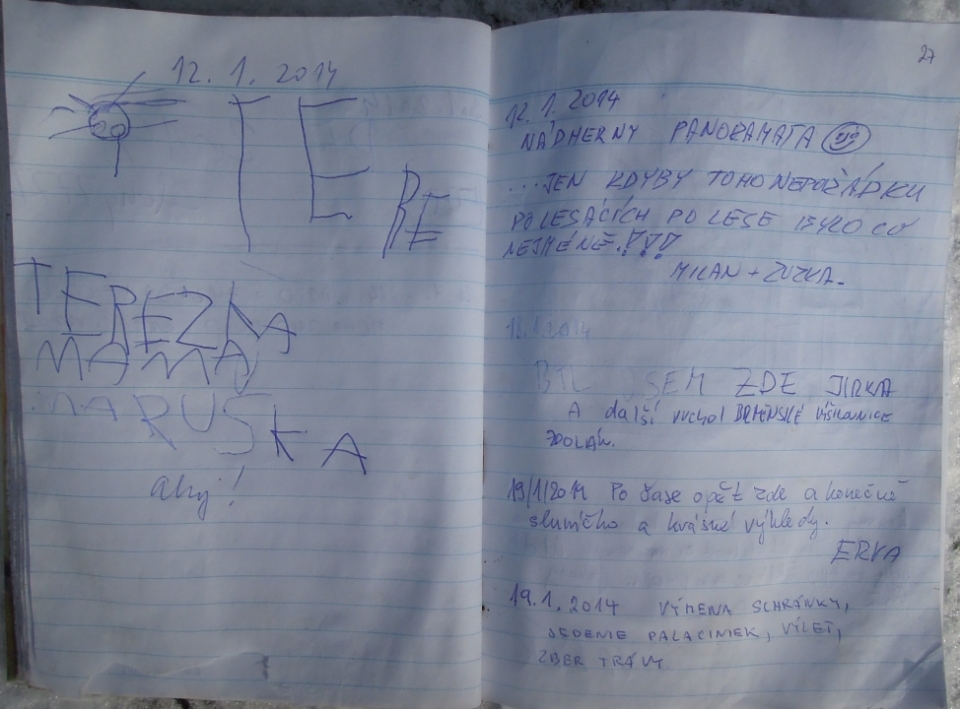 12. 1. 2014
TE
BE
TEREZKA
MAMA
MARUŠKA
ahoj!
27
12. 1. 2014
NÁDHERNY PANORAMATA
...JEN KDYBY TOHO NEPOŘÁDKU
PO LESÁCÍCH PO LESE BYLO CO
NEJMÉNĚ.!!!
MILAN + ZUZKA.
1.2014
BYL JSEM ZDE JIRKA
A další vrchol BRNĚNSKÉ
ZDOLÁN.
19/1/2014 Po čase opět zde a konečně
sluníčko a krásné výhledy.
ERKA
19.1.2014 VÝMENA SCHRÁNKY,
JEDENIE PALACINIEK, VÝLET,
ZBER TRÁVY